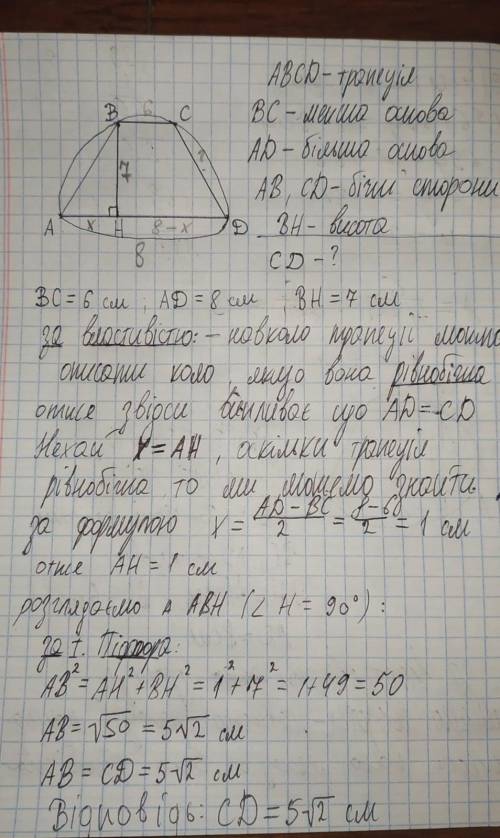 ABCD – трапеція
BC – менша основа
AD – більша основа
AB, CD – бічні сторони
BH – висота
CD – ?
B 6 C
7 ?
A x H 8 – x D
8
BC = 6 см ; AD = 8 см ; BH = 7 см
за властивістю: – навколо трапеції можна
описати коло, якщо вона рівнобічна
отже звідси випливає що AD = CD
Нехай X = AH , оскільки трапеція
рівнобічна то ми можемо знайти
за формулою x = AD – BC / 2 = 8 – 6 / 2 = 1 см
отже AH = 1 см
розглядаємо Δ ABH (∠ H = 90°) :
за т. Піфагора:
AB² = AH² + BH² = 1² + 7² = 1 + 49 = 50
AB = √50 = 5√2 см
AB = CD = 5√2 см
Відповідь: CD = 5√2 см